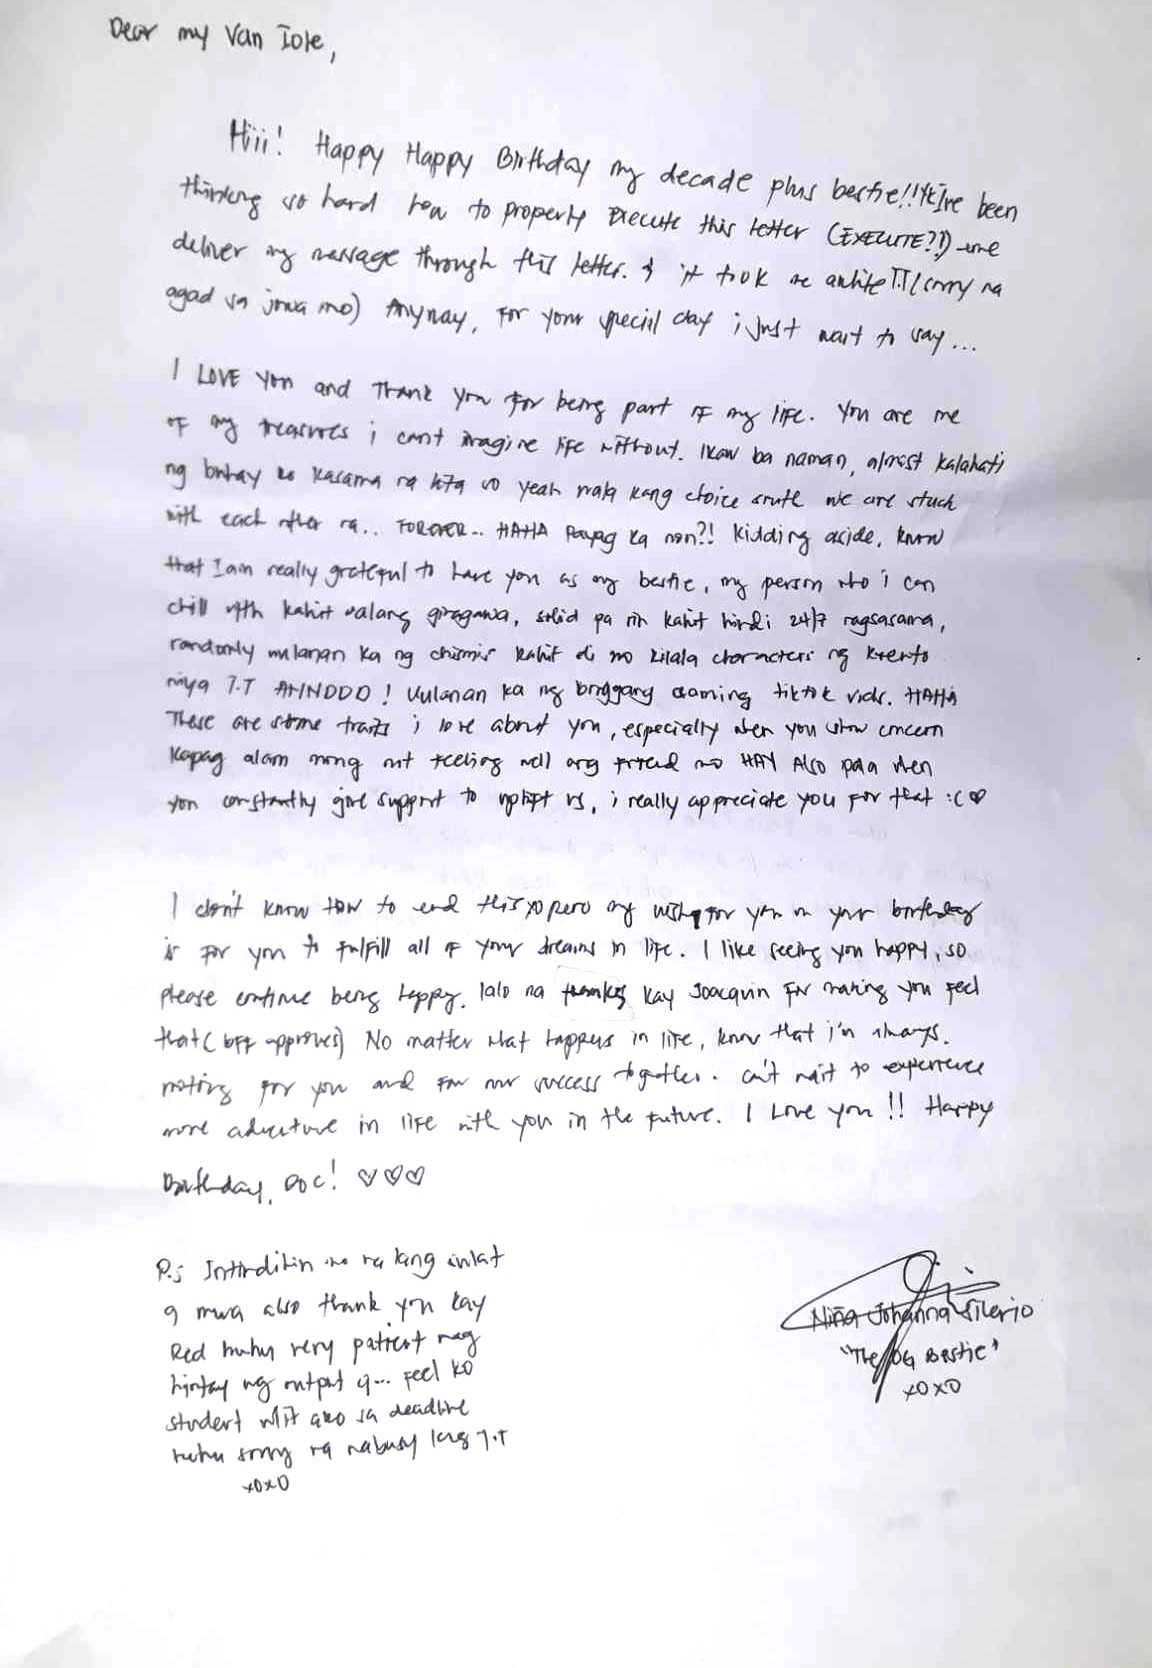 Dear my Van Iole,
Hiii! Happy Happy Birthday my decade plus bestie!! I've been
thinking so hard how to properly execute this letter (EXECUTE?!)
deliver my message through this letter. & it took me awhile T.T (sorry na
agad sa jowa mo) Anyway, For your special day i just want to say...
I LOVE You and Thank you for being part of my life. You are one
of my treasures i can't imagine life without. Ikaw ba naman, almost kalahati
ng buhay ko kasama na kita so yeah wala kang choice we are stuck
with each other na.. FOREVER.. HAHA Payag ka non?! Kidding aside, know
that I am really grateful to have you as my bestie, my person who i can
chill with kahit walang ginagawa, solid pa rin kahit hindi 24/7 nagsasama,
randomly mulanan ka ng chismis kahit di mo kilala characters ng kwento
niya T.T ANNDDD! Uulanan ka ng tiktok vids. HAHA
These are some traits i love about you, especially when you show concern
kapag alam mong not feeling well ang friend mo HAY Also pala when
you constantly give support to uplift us, i really appreciate you for that :( ♡
I don't know how to end this pero my wish for you on your birthday
is for you to fulfill all of your dreams in life. I like seeing you happy, so
please continue being happy. lalo na thanks kay Joacquin for making you feel
that (bff approves) No matter what happens in life, know that i'm always.
rooting for you and for our success together. can't wait to experience
more adventure in life with you in the future. I Love you!! Happy
Birthday, Doc! ♡♡♡
P.s Intindihin mo na lang sulat
q mwa also thank you kay
Red huhu very patient nag
hintay ng output q... Feel ko
student ulit ako sa deadline
huhu sorry na nabusy lang T.T
xoxo
Niña Johanna Silerio
"The OG Bestie"
xoxo